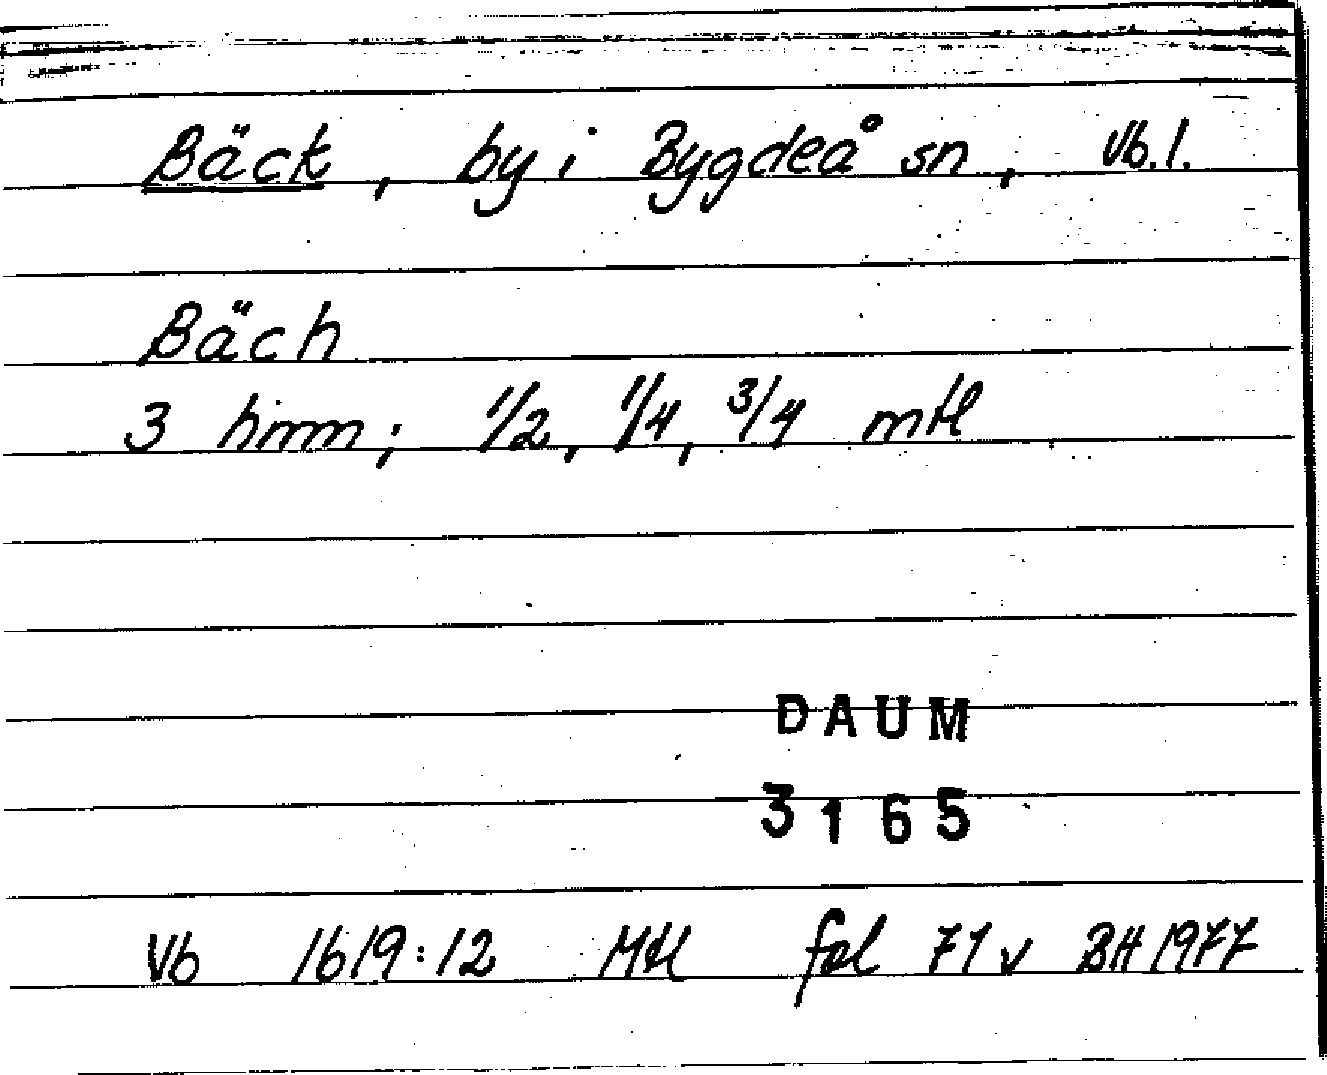 Bäck, by i Bygdeå sn, Vb.l.
Bäch
3 hmm; 1/2, 1/4, 3/4 mtl
DAUM
3165
Vb 1619:12 Mtl fol 71v BH 1977